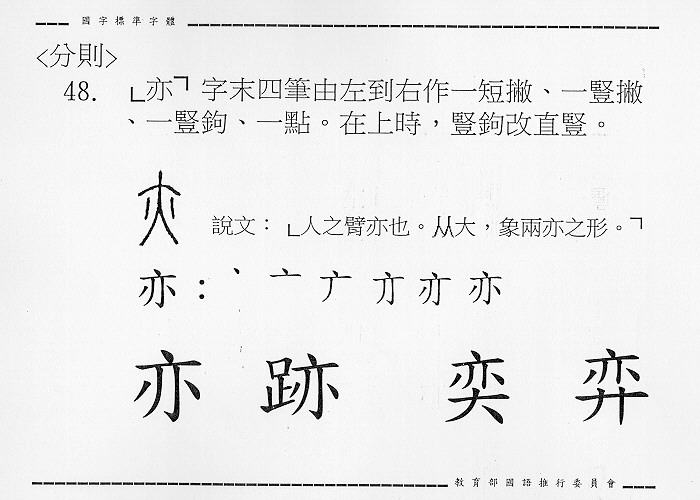 國字標準字體
<分則>
48. 「亦」字末四筆由左到右作一短撇、一豎撇
、一豎鉤、一點。在上時，豎鉤改直豎。
說文：「人之臂亦也。从大，象兩亦之形。」
亦：丶 亠 亦
亦 跡 奕 弈
教育部國語推行委員會